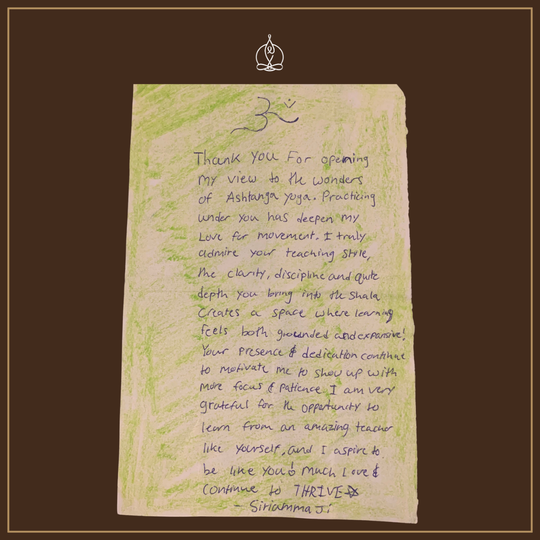 ॐ
Thank You For opening
my view to the wonders
of Ashtanga yoga. Practicing
under you has deepen my
Love for movement. I truly
admire your teaching style,
the clarity, discipline and quite
depth you bring into the Shala
Creates a space where learning
feels both grounded and expansive!
Your presence & dedication continue
to motivate me to show up with
more focus & patience I am very
grateful for the opportunity to
learn from an amazing teacher
like yourself, and I aspire to
be like you! Much Love &
Continue to THRIVE
- Siriamma Ji